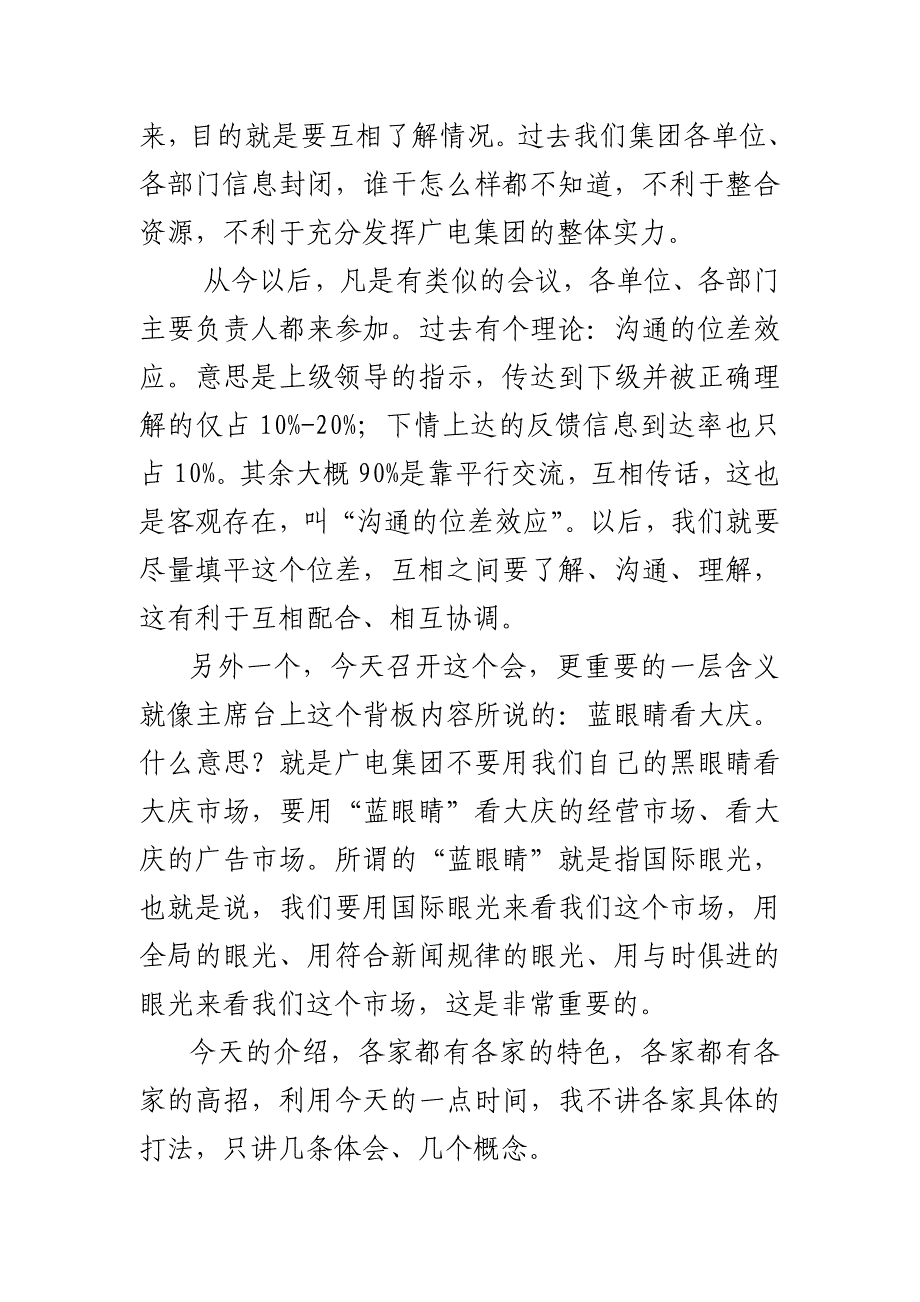 来，目的就是要互相了解情况。过去我们集团各单位、
各部门信息封闭，谁干怎么样都不知道，不利于整合
资源，不利于充分发挥广电集团的整体实力。
从今以后，凡是有类似的会议，各单位、各部门
主要负责人都来参加。过去有个理论：沟通的位差效
应。意思是上级领导的指示，传达到下级并被正确理
解的仅占10%-20%；下情上达的反馈信息到达率也只
占10%。其余大概90%是靠平行交流，互相传话，这也
是客观存在，叫“沟通的位差效应”。以后，我们就要
尽量填平这个位差，互相之间要了解、沟通、理解，
这有利于互相配合、相互协调。
另外一个，今天召开这个会，更重要的一层含义
就像主席台上这个背板内容所说的：蓝眼睛看大庆。
什么意思？就是广电集团不要用我们自己的黑眼睛看
大庆市场，要用“蓝眼睛”看大庆的经营市场、看大
庆的广告市场。所谓的“蓝眼睛”就是指国际眼光，
也就是说，我们要用国际眼光来看我们这个市场，用
全局的眼光、用符合新闻规律的眼光、用与时俱进的
眼光来看我们这个市场，这是非常重要的。
今天的介绍，各家都有各家的特色，各家都有各
家的高招，利用今天的一点时间，我不讲各家具体的
打法，只讲几条体会、几个概念。